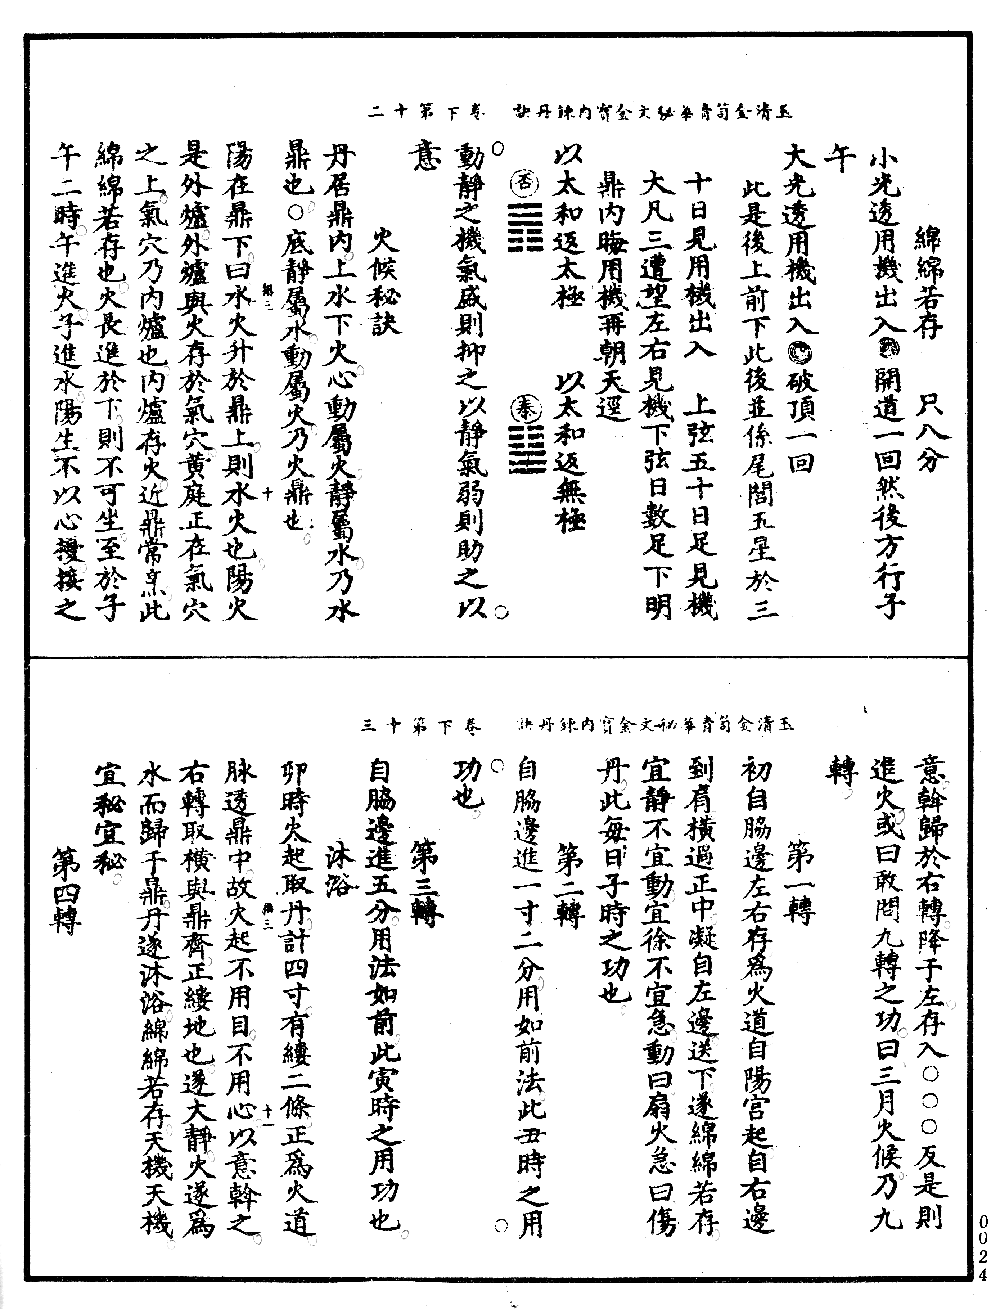 玉清金笥青華秘文金寶內鍊丹訣　卷下第十二
綿綿若存　尺八分
小光透用機出入開道一回然後方行子
午
大光透用機出入破頂一回
此是後上前下此後並係尾閭五星於三
十日見用機出入　上弦五十日足見機
大凡三遭望左右見機下弦日數足下明
鼎內晦用機再朝天逕
以太和返太極　以太和返無極
否　泰
動靜之機氣盛則抑之以靜氣弱則助之以
意
火候秘訣
丹居鼎內上水下火心動屬火靜屬水乃水
鼎也○底靜屬水動屬火乃火鼎也
陽在鼎下曰水火升於鼎上則水火也陽火
是外爐外爐與火存於氣穴黃庭正在氣穴
之上氣穴乃內爐也內爐存火近鼎常烹此
綿綿若存也火長進於下則不可坐至於子
午二時午進火子進水陽生不以心擾接之
十
玉清金笥青華秘文金寶內鍊丹訣　卷下第十三
意斡歸於右轉降于左存入○○○反是則
進火或曰敢問九轉之功曰三月火候乃九
轉
第一轉
初自脇邊左右存爲火道自陽宮起自右邊
到肩橫過正中凝自左邊送下遂綿綿若存
宜靜不宜動宜徐不宜急動曰扇火急曰傷
丹此每日子時之功也
第二轉
自脇邊進一寸二分用如前法此丑時之用
功也
第三轉
自脇邊進五分用法如前此寅時之用功也
沐浴
卯時火起取丹計四寸有縷二條正爲火道
脉透鼎中故火起不用目不用心以意斡之
右轉取橫與鼎齊正縷地也遂大靜火遂爲
水而歸于鼎丹遂沐浴綿綿若存天機天機
宜秘宜秘
第四轉
十一
0024